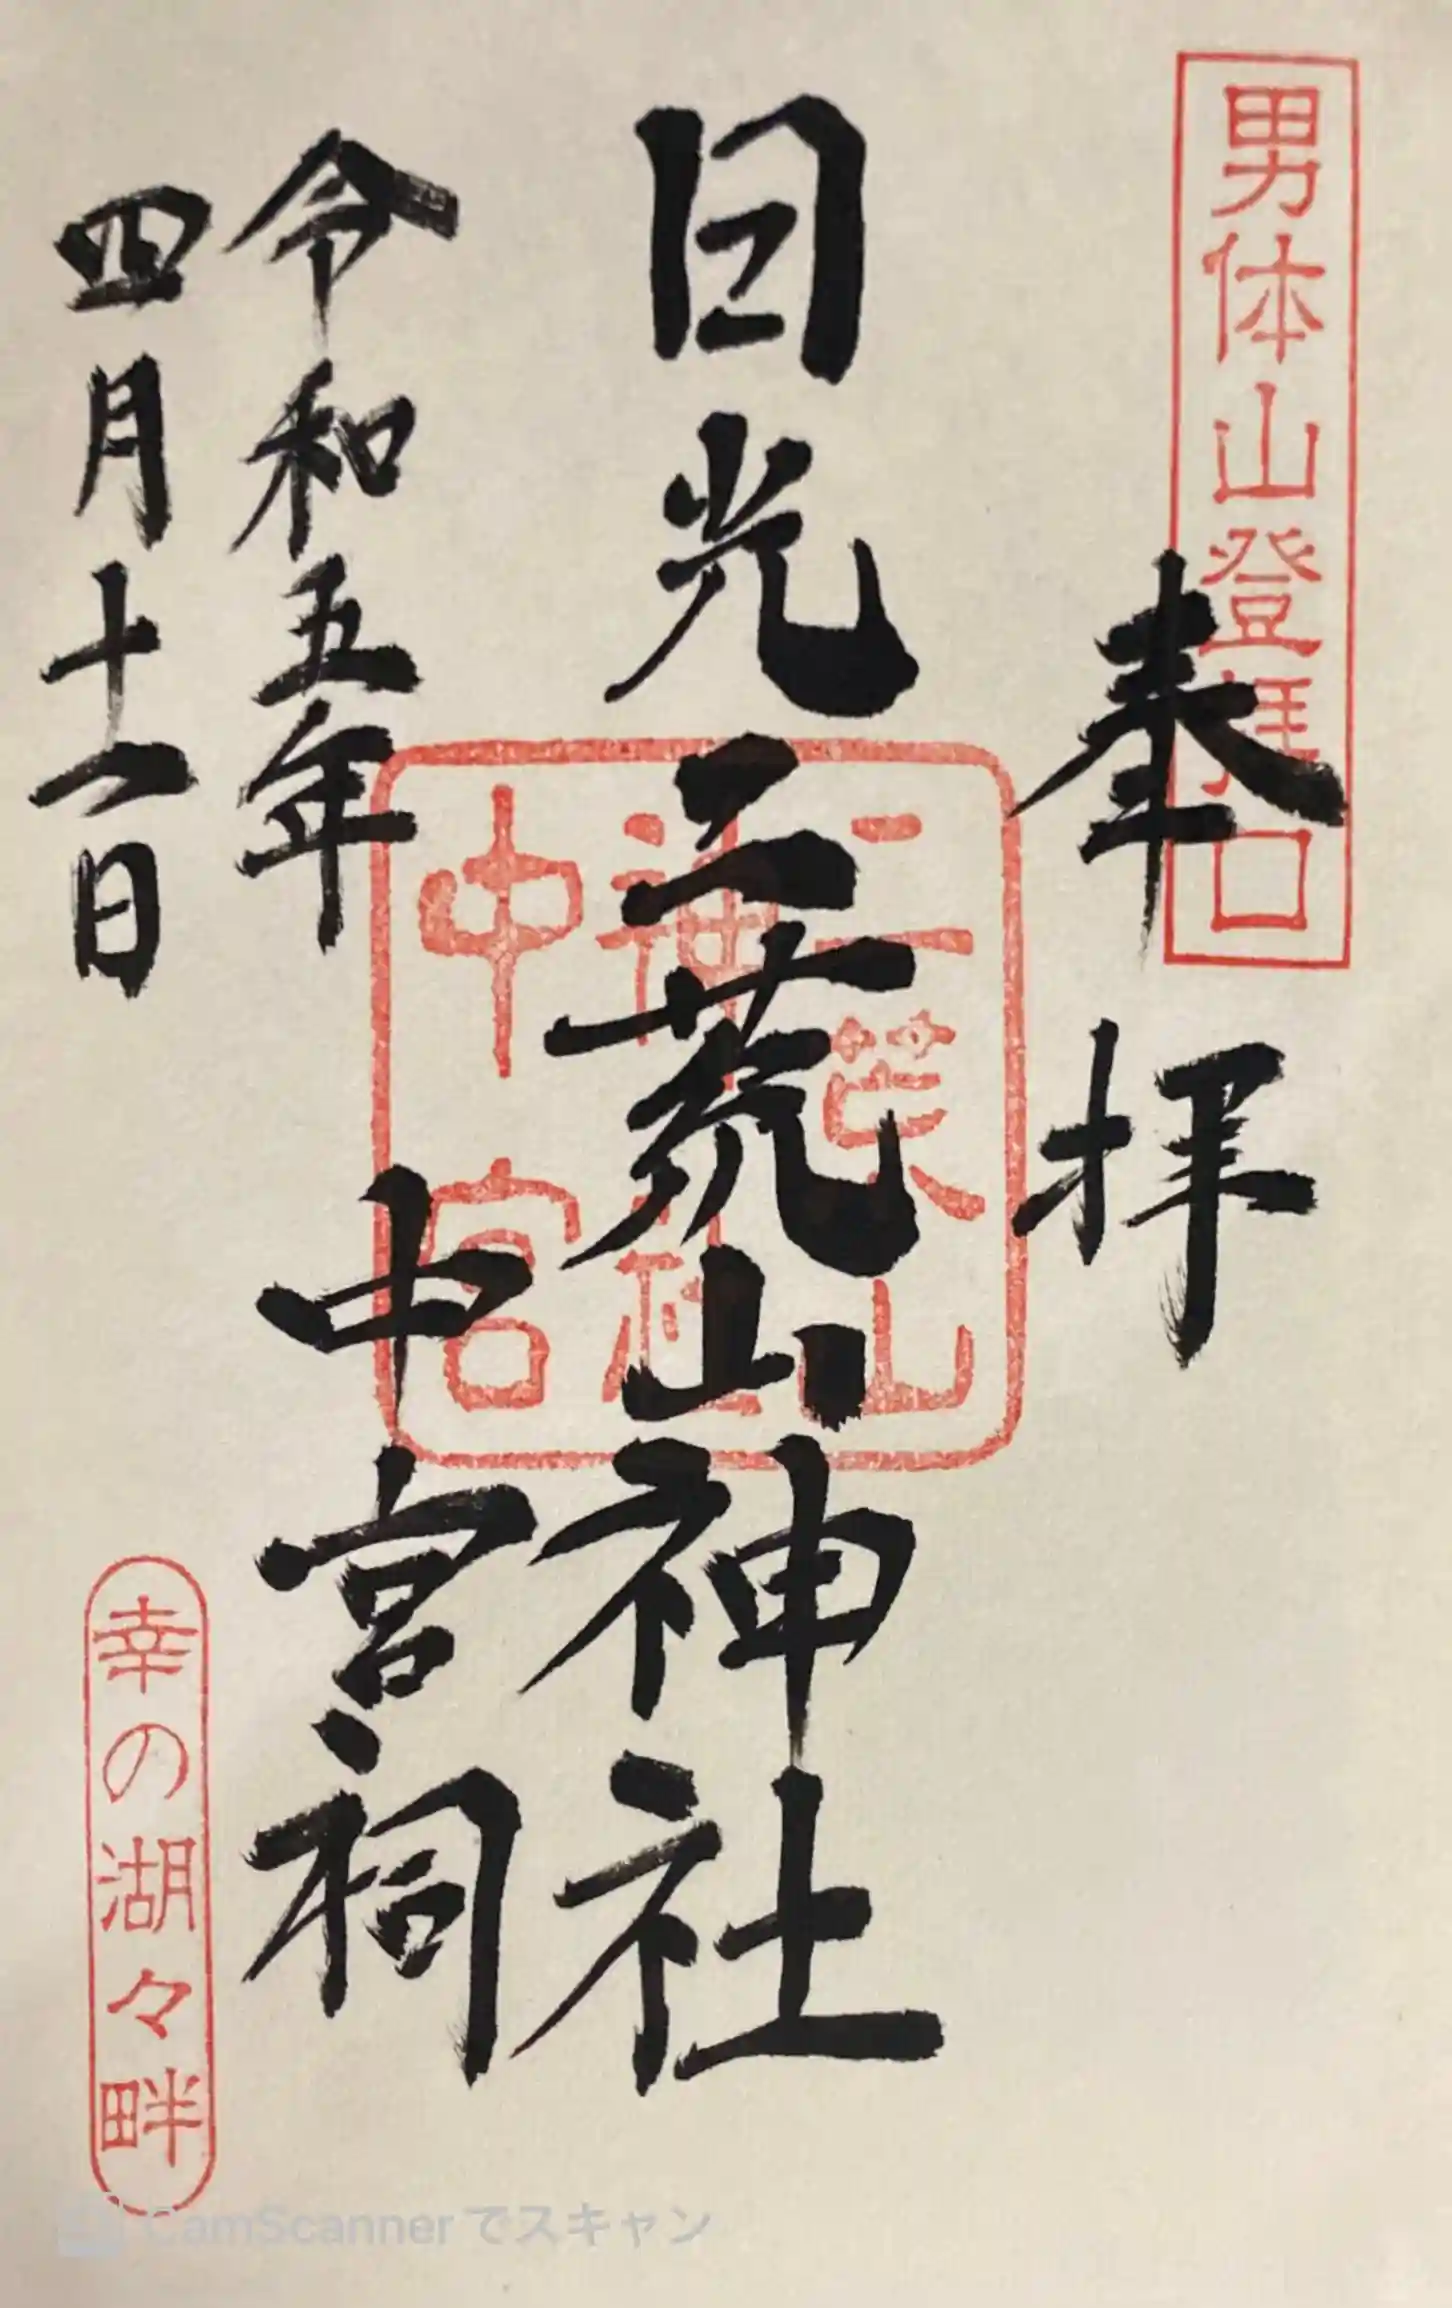 男体山登拝口
奉拝
日光二荒山神社
中宮祠
二荒山
神社
中宮
令和五年
四月十一日
幸の湖々畔
CamScanner でスキャン